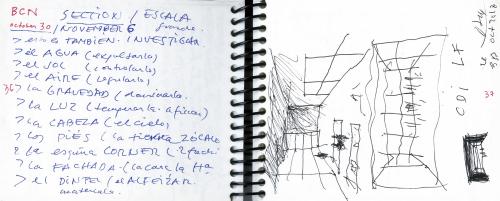 BCN SECTION / ESCALA
october 30 / NOVEMBER 6
TAMBIEN. INVESTIGAR
> el AGUA (expulsarlo)
> el SOL (controlarlo)
> el AIRE (regularlo)
36 > la GRAVEDAD (dominarla.
> la LUZ (temperarla. afinar)
> la CABEZA (el cielo)
> los PIÉS (la tierra ZÓCALO
> la esquina CORNER (
> la FACHADA - (la cara
> el DINTEL / el ALFEIZAR.
materiales.
CDI LF
37